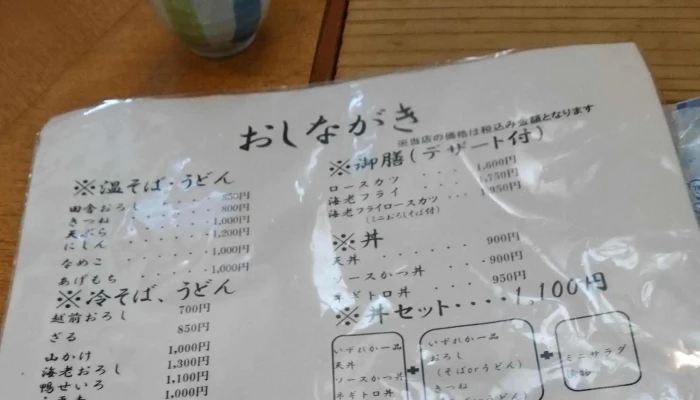 おしながき
※当店の価格は税込み金額となります
※温そば・うどん
田舎おろし ・・・・・・ 850円
きつね ・・・・・・ 800円
天ぷら ・・・・・・ 1,000円
にしん ・・・・・・ 1,200円
なめこ ・・・・・・ 1,000円
あげもち ・・・・・・ 1,000円
※冷そば、うどん
越前おろし 700円
ざる 850円
山かけ 1,000円
海老おろし 1,300円
鴨せいろ 1,100円
1,000円
※御膳(デザート付)
ロースカツ ・・・ 1,600円
海老フライ ・・・ 1,750円
海老フライロースカツ ・・・ 1,950円
(ミニおろしそば付)
※丼
天丼 ・・・・・・ 900円
ソースかつ丼 ・・・・ 900円
ネギトロ丼 ・・・・ 950円
※丼セット・・・・1,100円
いずれか一品
天丼
ソースかつ丼
ネギトロ丼
+
いずれか一品
おろし
(そばorうどん)
きつね
+
ミニサラダ